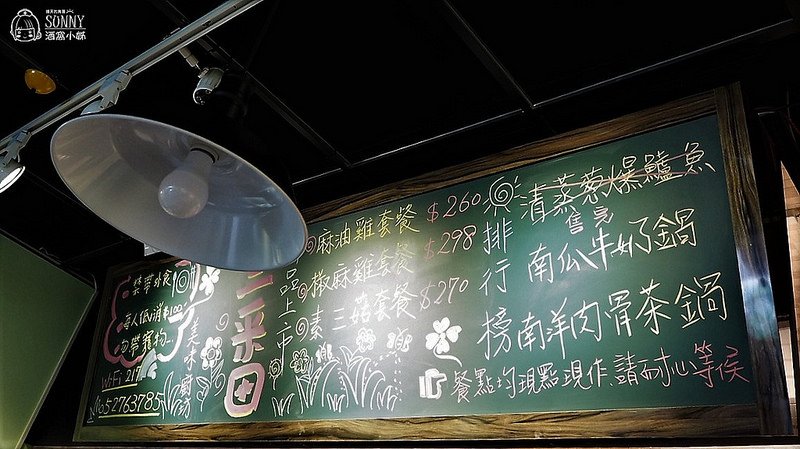 SONNY
酒窩小姊
禁帶外食
每人低消$100
勿帶寵物
WiFi 217
052763785
美味廚房
三禾田
品上市
麻油雞套餐 $260
椒麻雞套餐 $298
素三菇套餐 $270
排行榜
清蒸蔥爆鱸魚
售完
南瓜牛奶鍋
南洋肉骨茶鍋
餐點均現點現作請耐心等侯